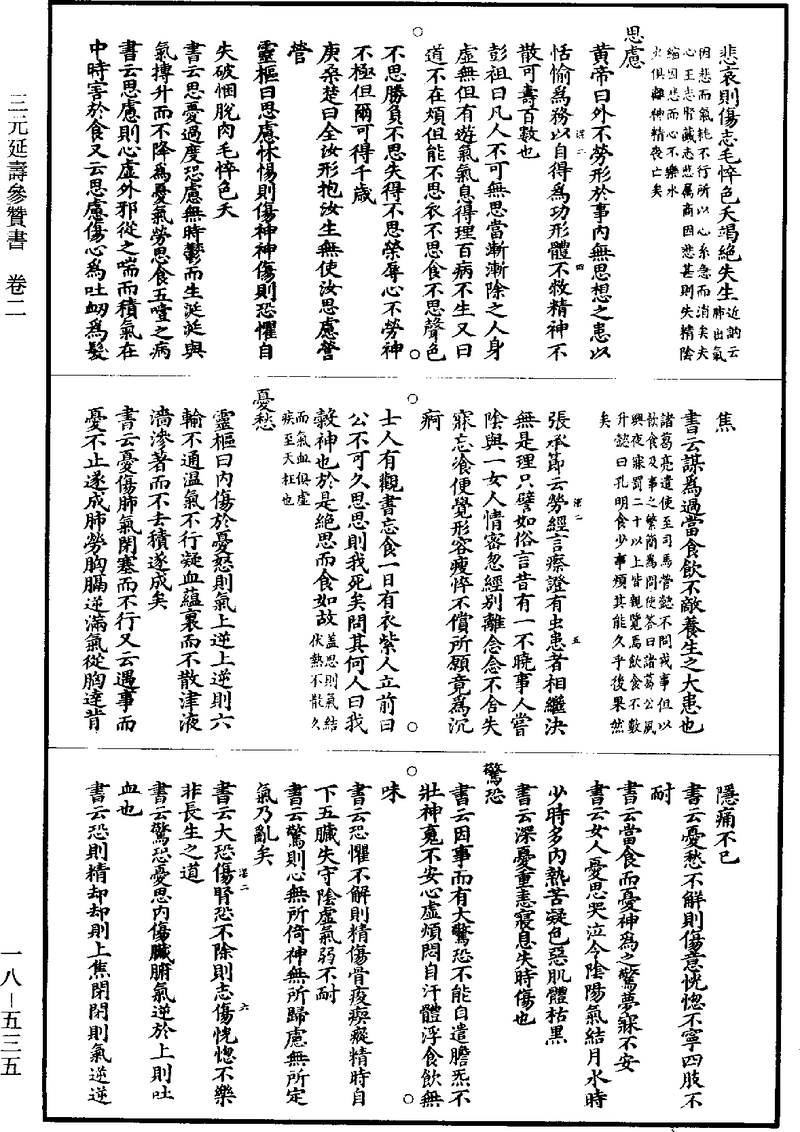 三元延壽參贊書　卷二
悲哀則傷志毛悴色夭竭絕失生近訥云肺出氣
因悲而氣耗不行所以心系急而消矣夫
心主志腎藏志悲屬商因悲甚則失精陰
縮因悲而心不樂水
火俱離神精喪亡矣
思慮
黃帝曰外不勞形於事內無思想之患以
恬愉為務以自得為功形體不敝精神不
散可壽百數也
彭祖曰凡人不可無思當漸漸除之人身
虛無但有遊氣氣息得理百病不生又曰
道不在煩但能不思衣不思食不思聲色
不思勝負不思失得不思榮辱心不勞神
不極但爾可得千歲
庚桑楚曰全汝形抱汝生無使汝思慮營
營
靈樞曰思慮怵惕則傷神神傷則恐懼自
失破䐃脫肉毛悴色夭
書云思憂過度恐慮無時鬱而生涎涎與
氣搏升而不降為憂氣勞思食五噎之病
書云思慮則心虛外邪從之喘而積氣在
中時害於食又云思慮傷心為吐衄為髮
深二　四
焦
書云謀為過當食飲不敵養生之大患也
諸葛亮遣使至司馬營懿不問戎事但以
飲食及事之繁簡為問使答曰諸葛公夙
興夜寐罰二十以上皆親覽焉飲食不數
升懿曰孔明食少事煩其能久乎後果然
矣
張承節云勞經言瘵證有虫患者相繼決
無是理只譬如俗言昔有一不曉事人嘗
陰與一女人情密忽經別離念念不舍失
寐忘飡便覺形容瘦悴不償所願竟為沉
痾
士人有觀書忘食一日有衣紫人立前曰
公不可久思思則我死矣問其何人曰我
穀神也於是絕思而食如故蓋思則氣結伏熱不散久
而氣血俱虛
疾至夭枉也
憂愁
靈樞曰內傷於憂怒則氣上逆上逆則六
輸不通溫氣不行凝血蘊裹而不散津液
濇滲著而不去積遂成矣
書云憂傷肺氣閉塞而不行又云遇事而
憂不止遂成肺勞胸膈逆滿氣從胸達背
深二　五
隱痛不已
書云憂愁不解則傷意恍惚不寧四肢不
耐
書云當食而憂神為之驚夢寐不安
書云女人憂思哭泣令陰陽氣結月水時
少時多內熱苦凝色惡肌體枯黑
書云深憂重恚寢息失時傷也
驚恐
書云因事而有大驚恐不能自遣膽炁不
壯神魂不安心虛煩悶自汗體浮食飲無
味
書云恐懼不解則精傷骨痠瘈瘲精時自
下五臟失守陰虛氣弱不耐
書云驚則心無所倚神無所歸慮無所定
氣乃亂矣
書云大恐傷腎恐不除則志傷恍惚不樂
非長生之道
書云驚恐憂思內傷臟腑氣逆於上則吐
血也
書云恐則精却却則上焦閉閉則氣逆逆
深二　六
一八－五三五